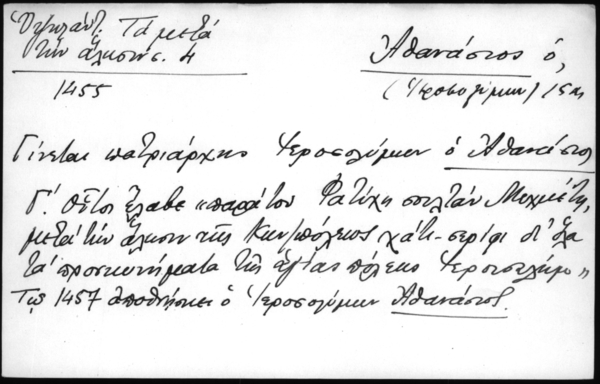 Ὑψηλάντ. Τὰ μετὰ
τὴν ἅλωσιν. 4
1455
Ἀθανάσιος ὁ,
(Ἱεροσολύμων) 15 αι
Γίνεται πατριάρχης Ἱεροσολύμων ὁ Ἀθανάσιος
Γ΄. Οὗτος ἔλαβε «παρὰ τοῦ Φατίχη σουλτὰν Μεχμέτη,
μετὰ τὴν ἅλωσιν τῆς Κων/πόλεως χάτι-σερίφι δι' ὅλα
τὰ προσκυνήματα τῆς ἁγίας πόλεως Ἱερουσαλήμ»
Τῷ 1457 ἀποθνήσκει ὁ Ἱεροσολύμων Ἀθανάσιος.